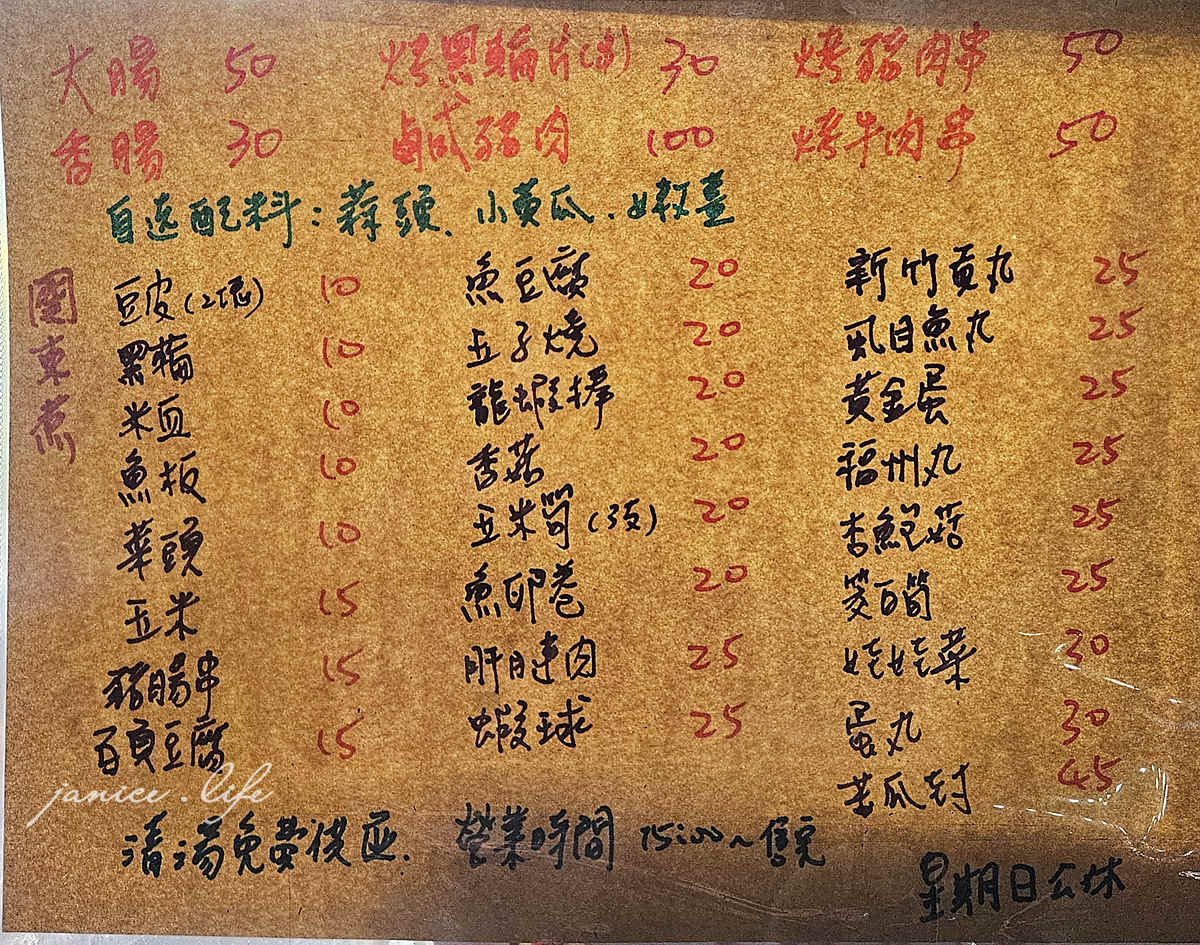 大腸 50 烤黑輪片(串) 30 烤豬肉串 50
香腸 30 鹹豬肉 100 烤牛肉串 50
自选配料:蒜頭、小黃瓜、嫩薑
關東煮
豆皮(2塊) 10 魚豆腐 20 新竹貢丸 25
黑輪 10 玉子燒 20 虱目魚丸 25
米血 10 龍蝦棒 20 黃金蛋 25
魚板 10 香菇 20 福州丸 25
蘿頭 10 玉米筍(3支) 20 杏鮑菇 25
玉米 15 魚卵卷 20 筊白筍 25
豬腸串 15 肝腱肉 25 娃娃菜 30
百頁豆腐 15 蝦球 25 蛋丸 30
苦瓜封 45
janice.life
清湯免費供應. 營業時間 15:00~售完
星期日公休